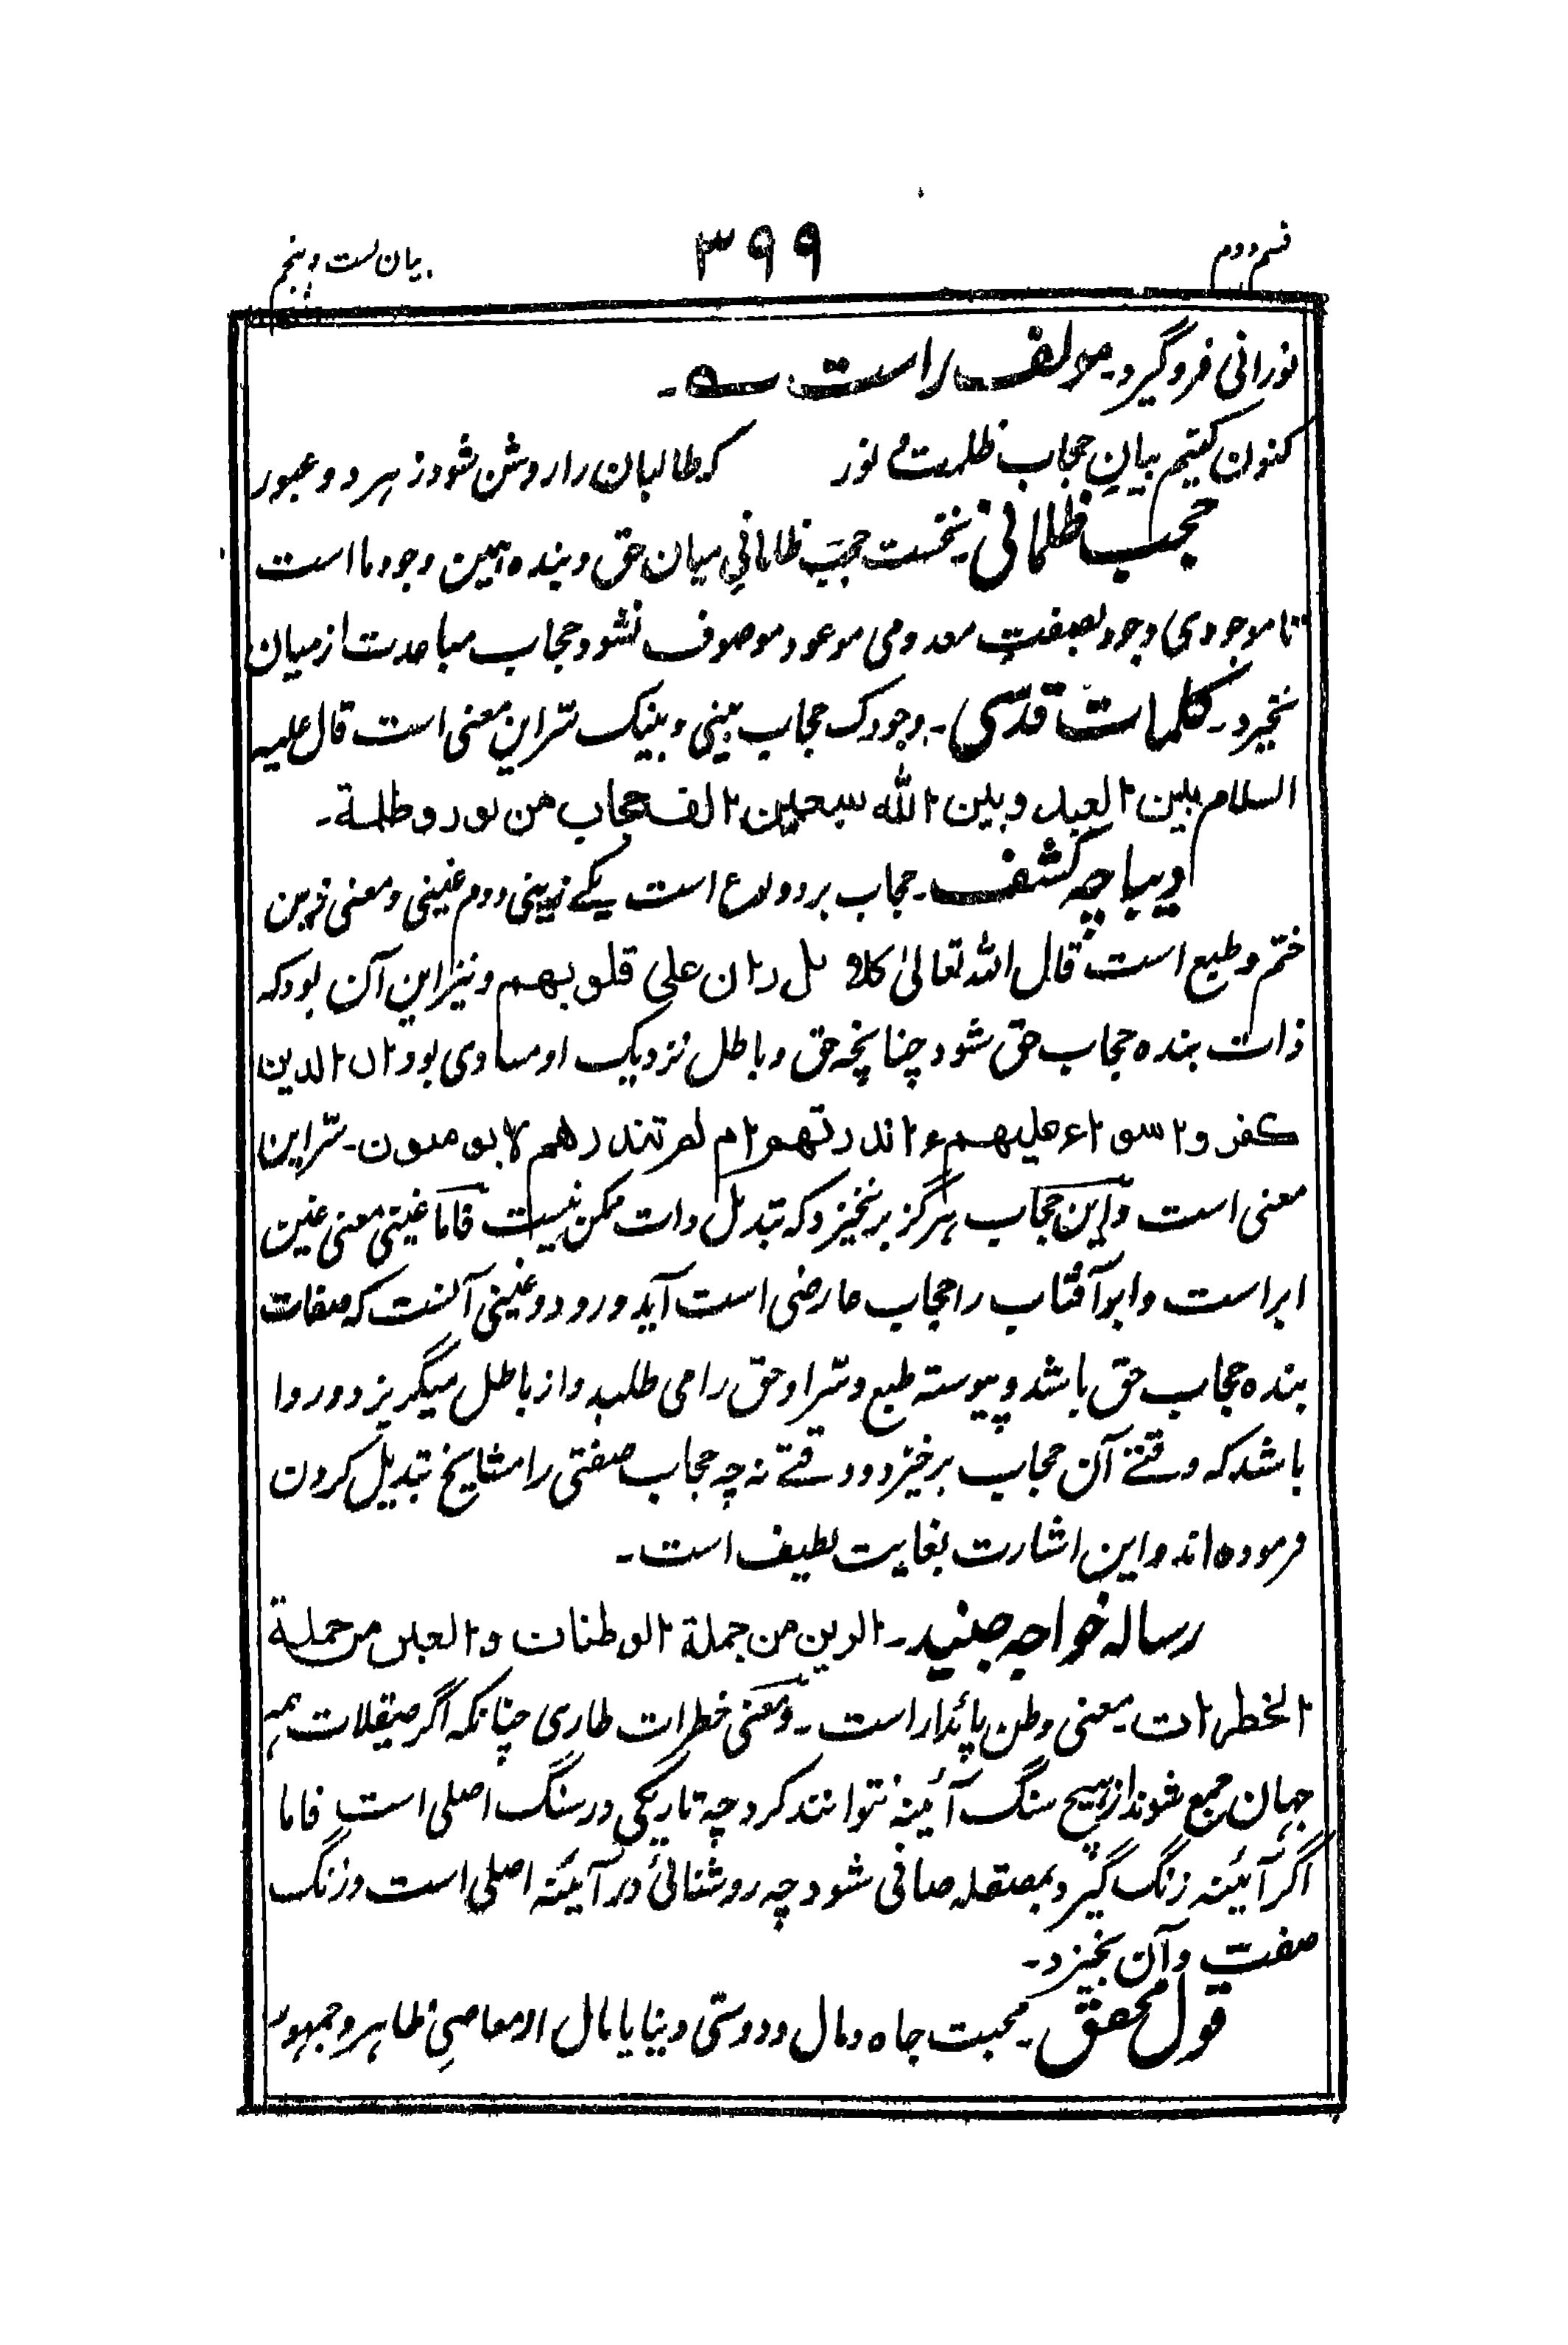 قسم دوم ۳۹۹ بیان بست و پنجم
نورانی فروگیرد۔ مولف راست ؎۔
کنون کنیم بیان حجاب ظلمت و نور کہ طالبان را روشن شود ز ہر دو عبور
حجب ظلمانی نخست حجب ظلمانی میان حق و بندہ ہمین وجود ما است
تا موجودی وجود بصفت معدومی موعود موصوف نشود حجاب مباعدت از میان
نخیزد۔ کلمات قدسی۔ وجودک حجاب بینی و بینک سر این معنی است قال علیہ
السلام بین العبد و بین اللہ سبعین الف حجاب من نور و ظلمة۔
دیباچہ کشف۔ حجاب بر دو نوع است یکے رینی دوم غینی و معنی رین
ختم و طبع است قال اللہ تعالیٰ کلا بل ران علی قلوبهم و نیز این آن بود کہ
ذات بندہ حجاب حق شود چنانچہ حق و باطل نزدیک او مساوی بود ان الذین
کفروا سواء علیهم ءانذرتهم ام لم تنذرهم لا یومنون۔ سر این
معنی است و این حجاب ہرگز برنخیزد کہ تبدیل ذات ممکن نیست فاما غینی معنی غین
ابر است و ابر آفتاب را حجاب عارضی است آید و رود و غینی آنست کہ صفات
بندہ حجاب حق باشد و پیوستہ طبع و سر او حق را می طلبد و از باطل میگریزد و روا
باشد کہ وقتے آن حجاب برخیزد و وقتے نہ چہ حجاب صفتی را مشایخ تبدیل کردن
فرمودہ اند و این اشارت بغایت لطیف است۔
رسالہ خواجہ جنید۔ الرین من جملة الوطنات و الغین من جملة
الخطرات۔ معنی وطن پائدار است۔ و معنی خطرات طاری چنانکہ اگر صیقلات ہمہ
جہان جمع شوند از ہیچ سنگ آئینہ نتوانند کرد چہ تاریکی در سنگ اصلی است فاما
اگر آئینہ زنگ گیرد بمصقلہ صافی شود چہ روشنائی در آئینہ اصلی است و زنگ
صفت و آن بخیزد۔
قول محقق۔ محبت جاہ و مال و دوستی دنیا یا مال از معاصی ظاہر و جمہور